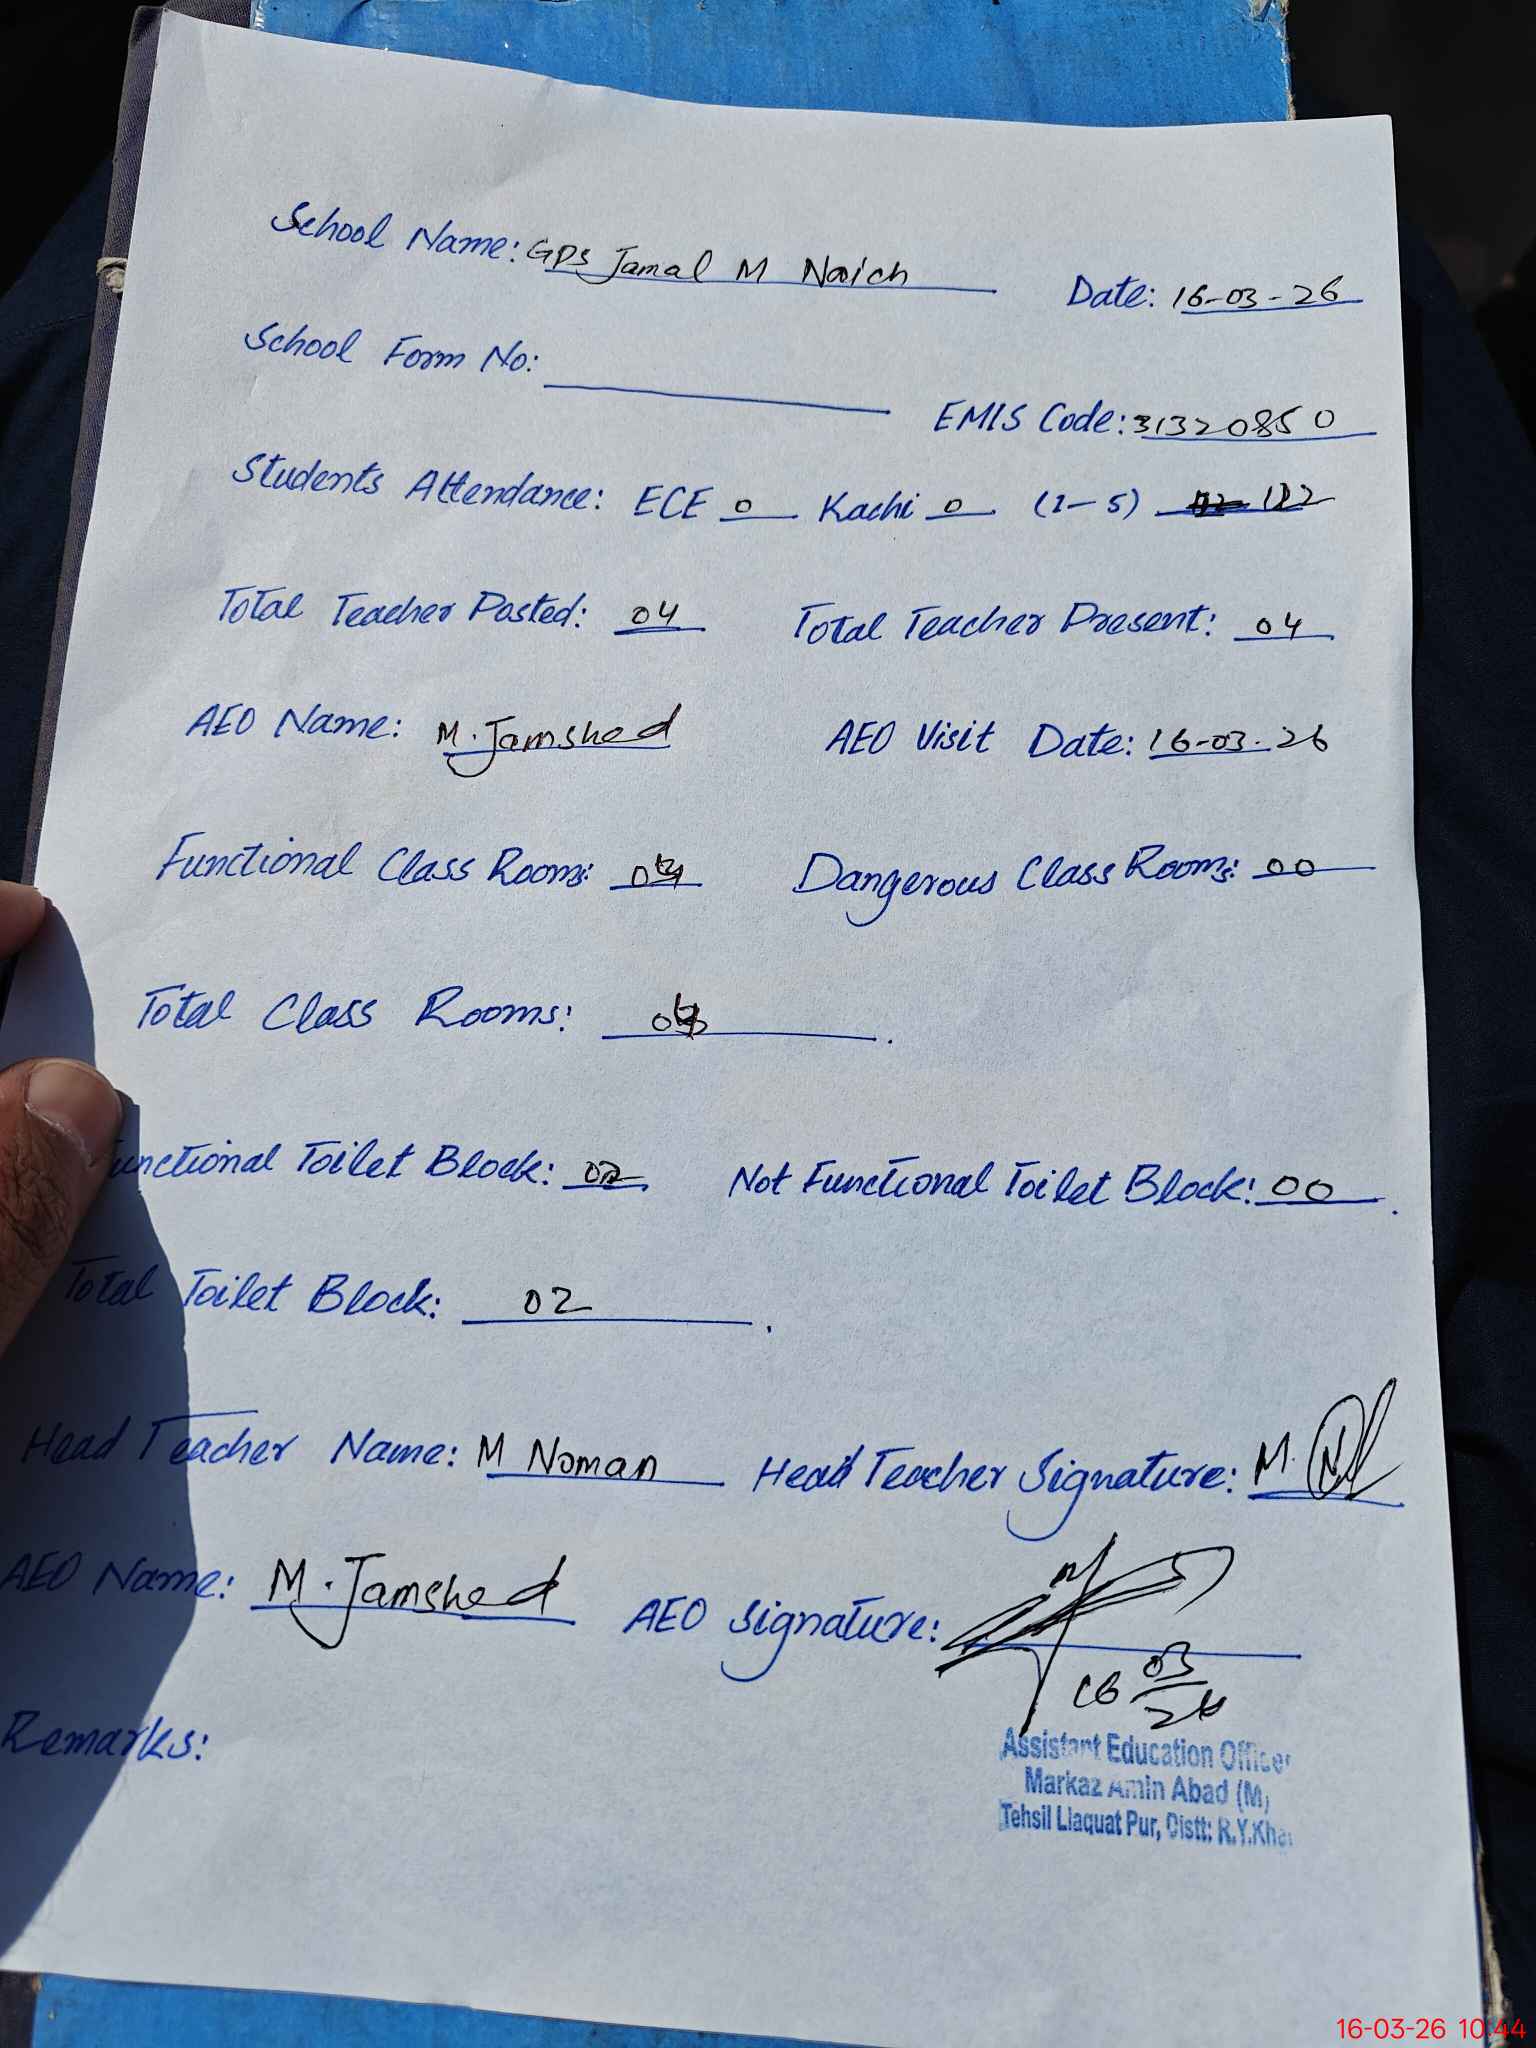 School Name: GPS Jamal M Naich
Date: 16-03-26
School Form No:
EMIS Code: 31320850
Students Attendance: ECE 0 Kachi 0 (1-5)
Total Teacher Posted: 04 Total Teacher Present: 04
AEO Name: M. Jamshed AEO Visit Date: 16-03-26
Functional Class Rooms: Dangerous Class Rooms: 00
Total Class Rooms:
unctional Toilet Block: 02 Not Functional Toilet Block: 00
Total Toilet Block: 02
Head Teacher Name: M Noman Head Teacher Signature: M.
AEO Name: M. Jamshed AEO Signature:
16 03
26
Remarks:
Assistant Education Officer
Markaz Amin Abad (M)
Tehsil Liaquat Pur, Distt: R.Y.Kha
16-03-26 10:44